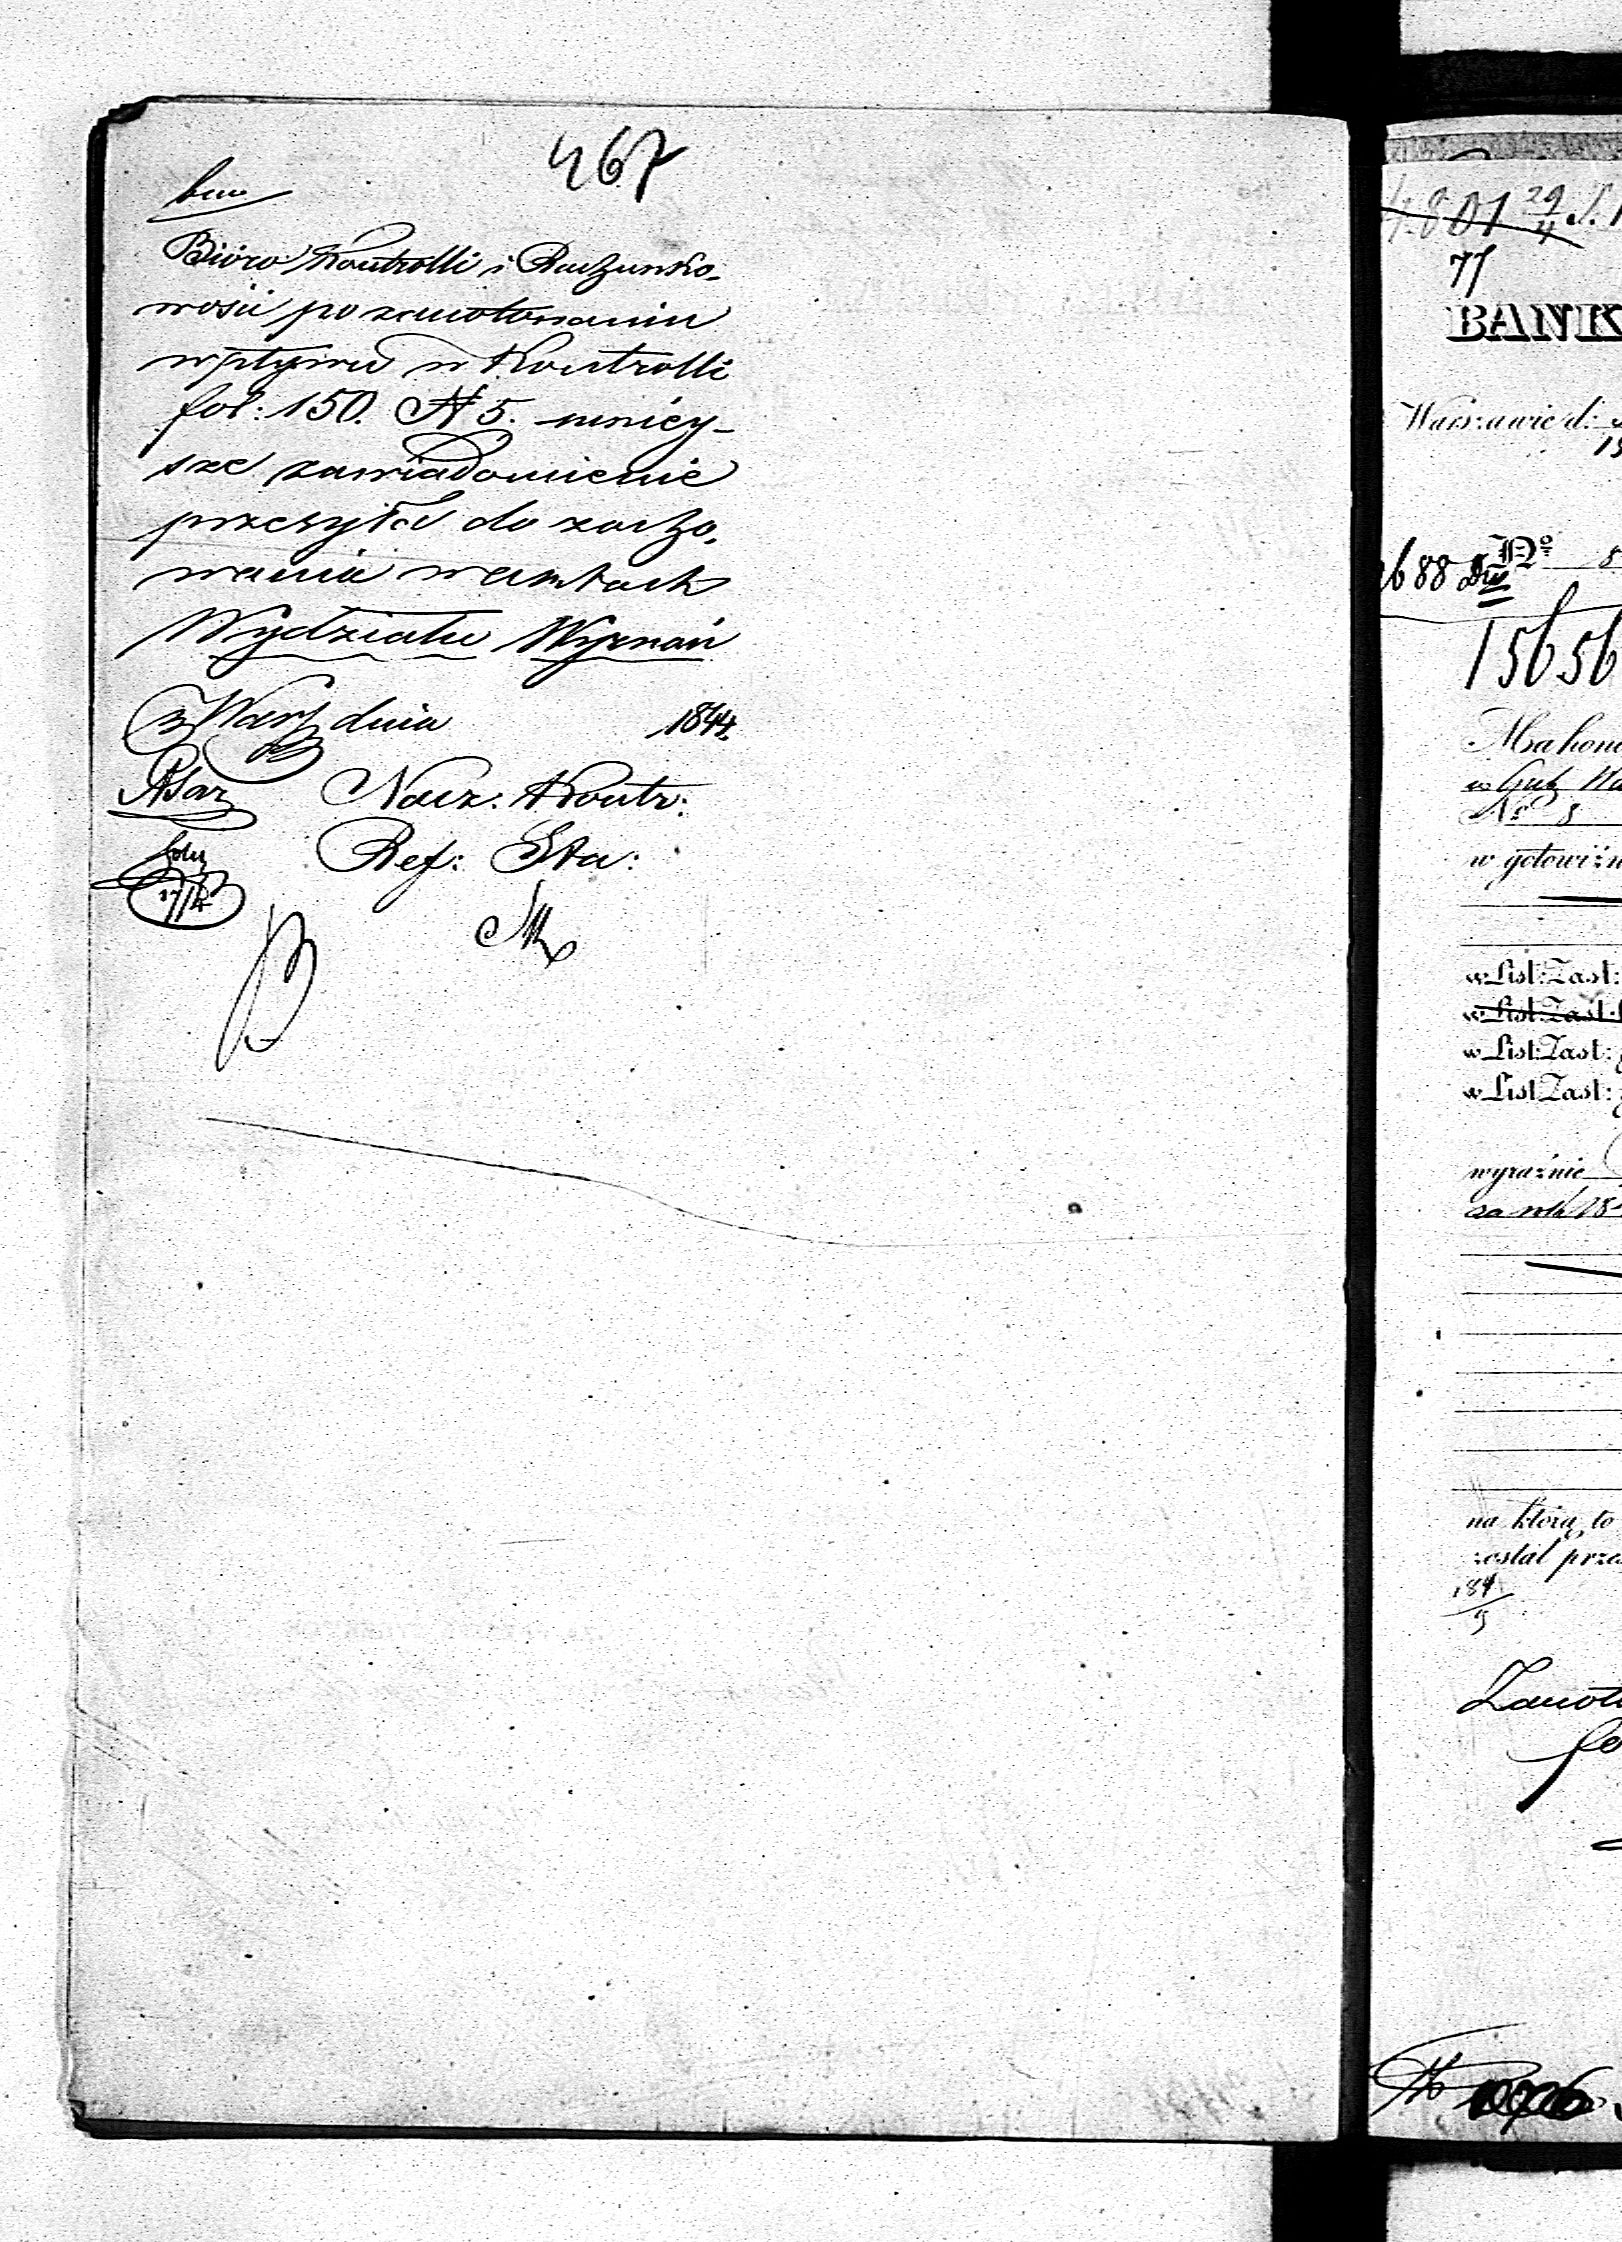 467
Bióro Kontrolli i Rachunko,
wości po zanotowaniu
wpływu w Kontrolli
fol: 150. N 5. niniey-
sze zawiadomienie
przesyła do zacho,
wania w aktach
Wydziału Wyznań
z Warsz dnia 1844.
Nacz: Kontr:
Ref: Sta:
17/4
4801 29/4
77
BANK
Warszawie d:
No
2688
15656
w Gub Wa
No 8
w gotowiźn
w List: Zast:
w List: Zast:
w List: Zast:
w List Zast:
wyraźnie
za rok 18
na którą to
został prze
184
Zanoto
fo